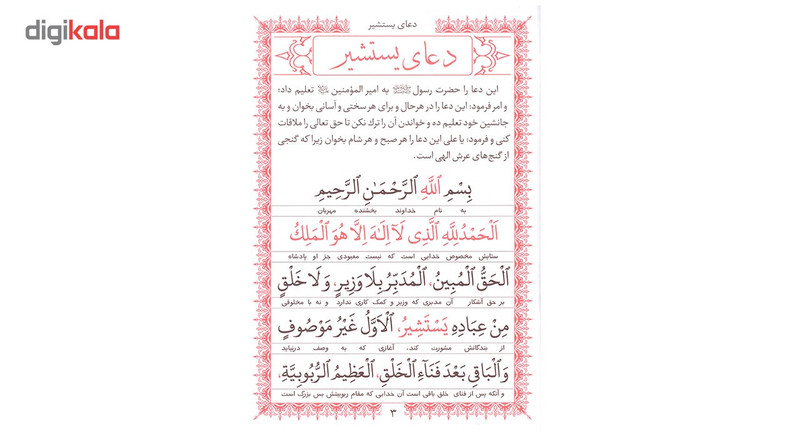 digikala
دعای یستشیر
دعای یستشیر
این دعا را حضرت رسول ﷺ به امیر المؤمنین تعلیم داد؛
و امر فرمود؛ این دعا را در هر حال و برای هر سختی و آسانی بخوان و به
جانشین خود تعلیم ده و خواندن آن را ترك نکن تا حق تعالی را ملاقات
کنی و فرمود: یا علی این دعا را هر صبح و هر شام بخوان زیرا که گنجی
از گنج‌های عرش الهی است.
بِسْمِ ٱللَّهِ ٱلرَّحْمَـٰنِ ٱلرَّحِيمِ
به نام خداوند بخشنده مهربان
اَلْحَمْدُلِلَّهِ ٱلَّذِی لَآ اِلَـٰهَ اِلَّا هُوَ ٱلْمَلِكُ
ستایش مخصوص خدایی است که نیست معبودی جز او پادشاه
ٱلْحَقُّ ٱلْمُبِينُ، ٱلْمُدَبِّرُ بِلَا وَزِيرٍ، وَ لَا خَلْقٍ
بر حق آشکار آن مدبری که وزیر و کمک کاری ندارد و نه با مخلوقی
مِنْ عِبَادِهِ يَسْتَشِيرُ، ٱلْاَوَّلُ غَيْرُ مَوْصُوفٍ
از بندگانش مشورت کند، آغازی که به وصف درنیاید
وَٱلْبَاقِی بَعْدَ فَنَآءِ ٱلْخَلْقِ، ٱلْعَظِيمُ ٱلرُّبُوبِيَّةِ،
و آنکه پس از فنای خلق باقی است آن خدایی که مقام ربوبیتش بس بزرگ است
۳